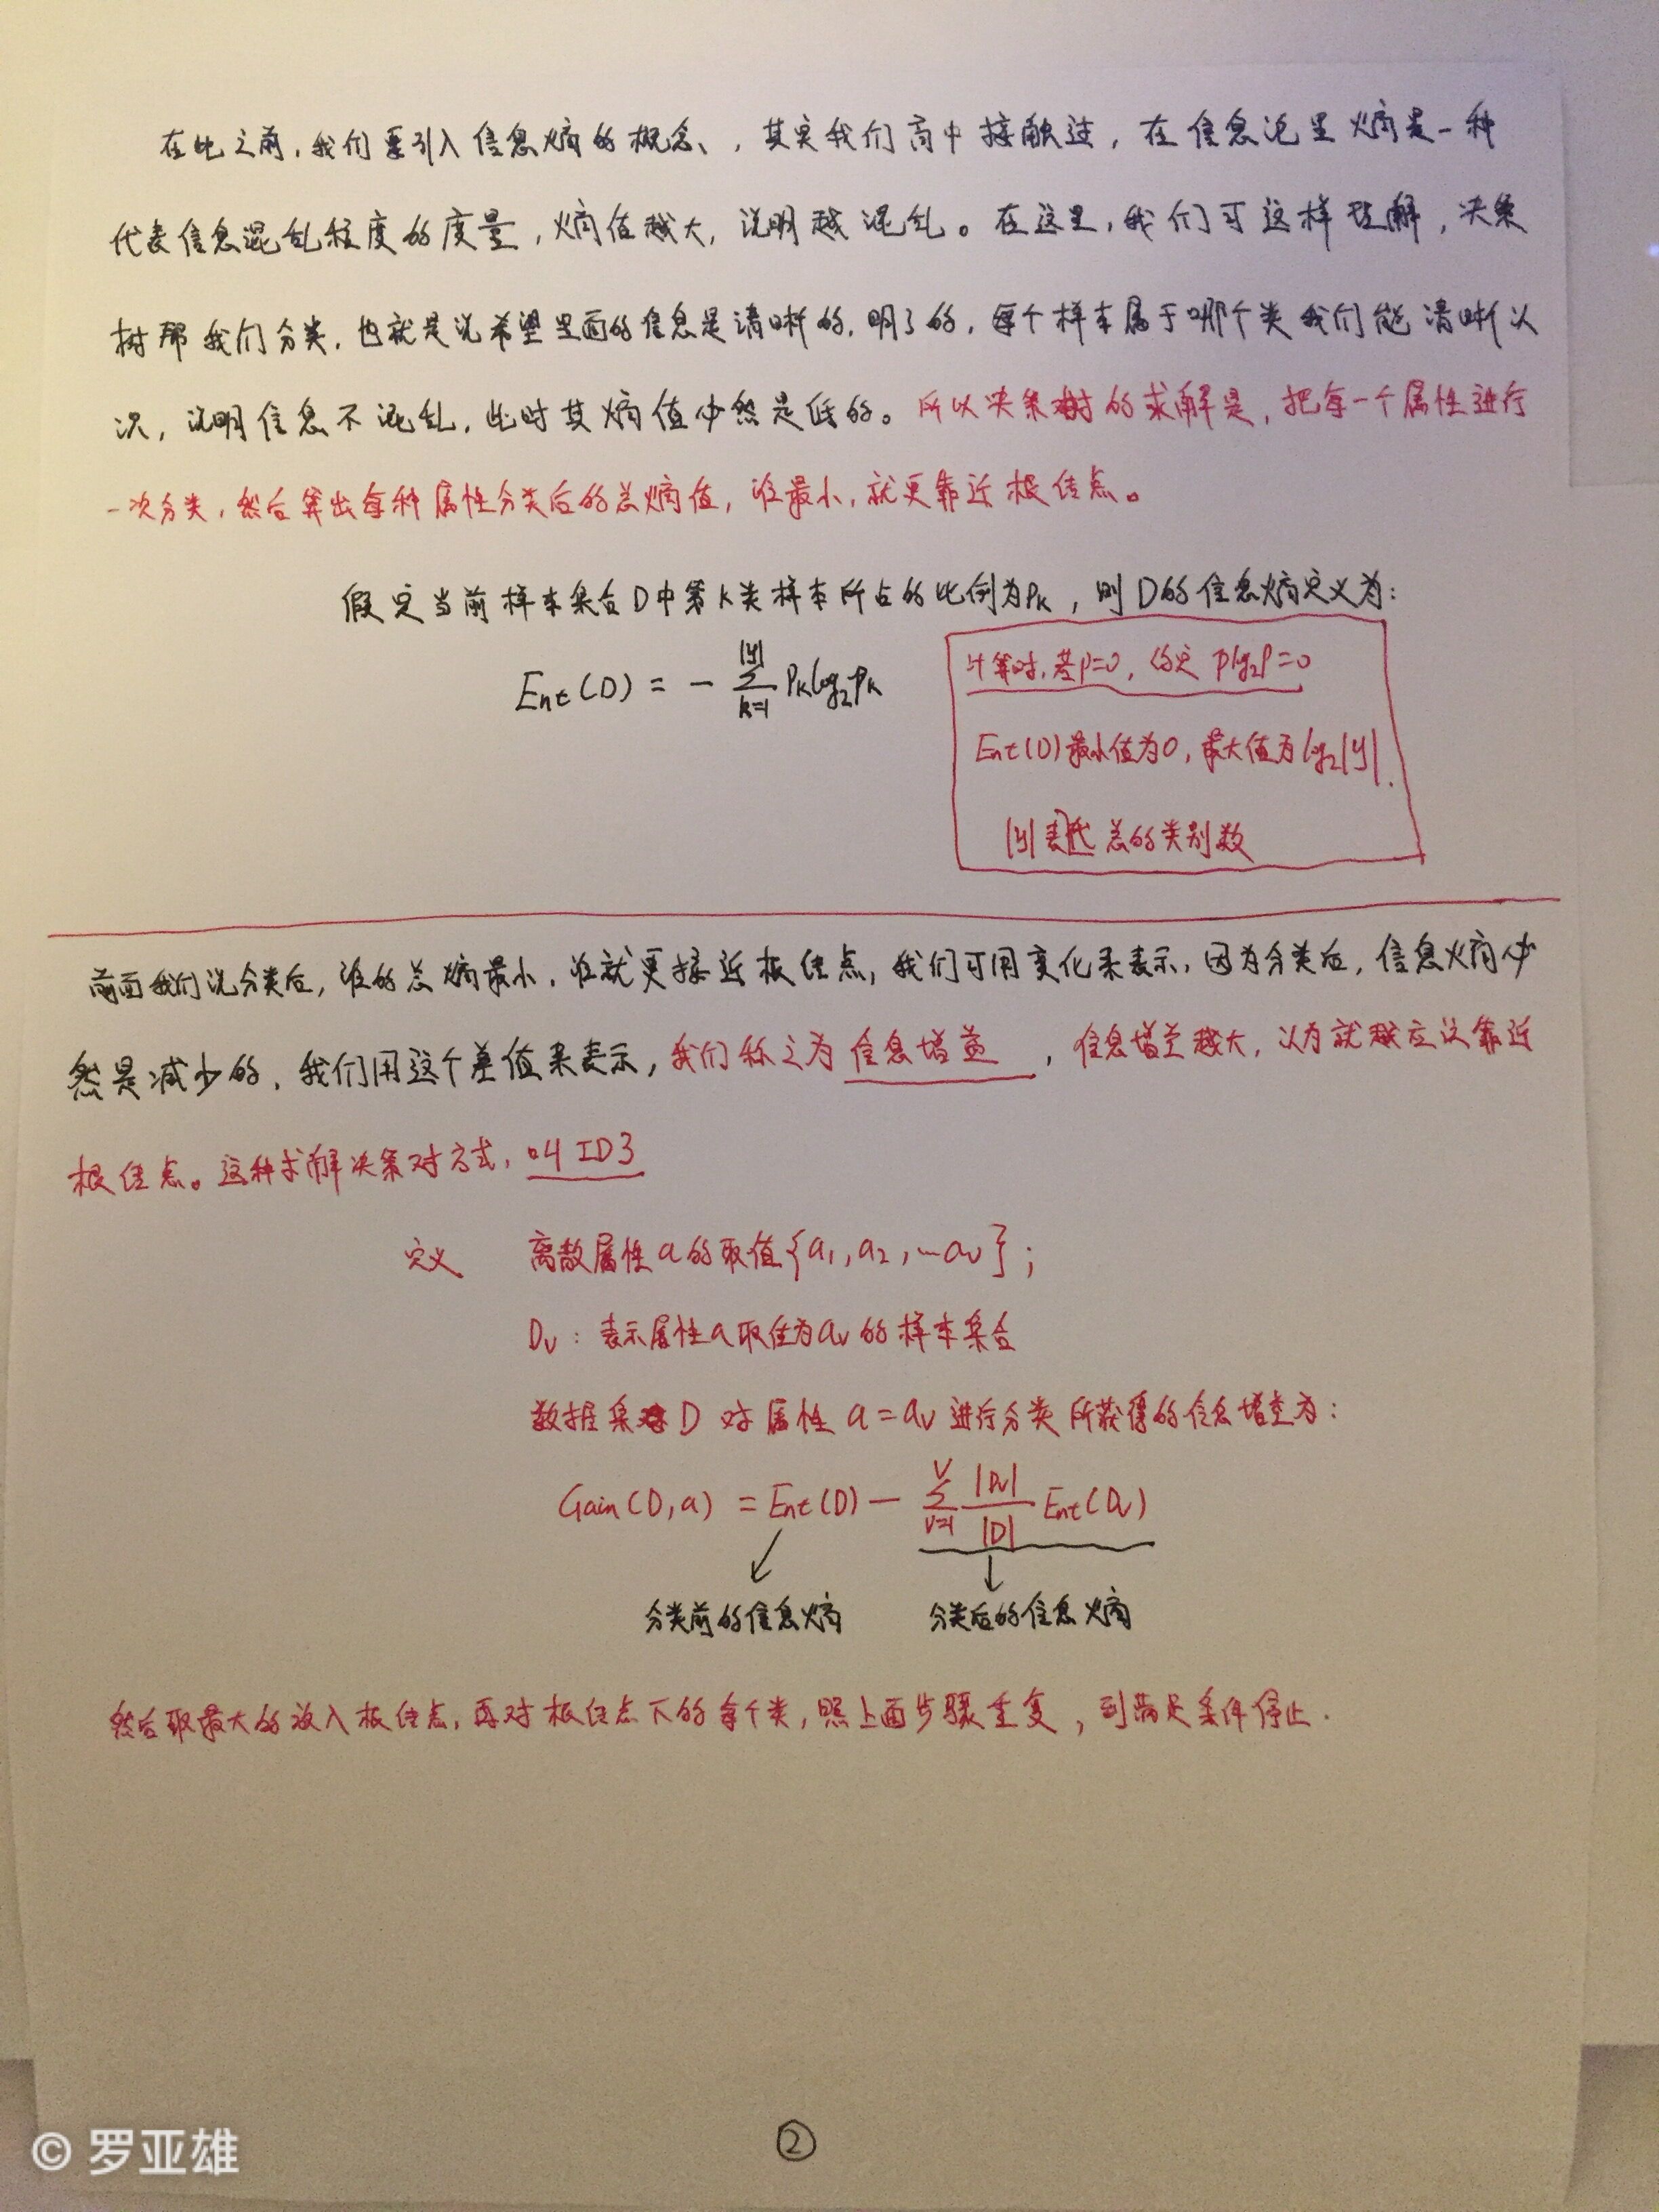 在此之前,我们要引入信息熵的概念,其实我们高中接触过,在信息论里熵是一种
代表信息混乱程度的度量,熵值越大,说明越混乱。在这里,我们可这样理解,决策
树帮我们分类,也就是说希望里面的信息是清晰的,明了的,每个样本属于哪个类我们能清晰认
识,说明信息不混乱,此时其熵值必然是低的。所以决策树的求解是,把每一个属性进行
一次分类,然后算出每种属性分类后的总熵值,谁最小,就更靠近根结点。
假定当前样本集合D中第K类样本所占的比例为Pk,则D的信息熵定义为:
Ent(D) = - ∑_{k=1}^{|y|} Pk log₂ Pk
计算时,若p=0,约定 plog₂p=0
Ent(D)最小值为0,最大值为log₂|y|.
|y|表示总的类别数
前面我们说分类后,谁的总熵最小,谁就更接近根结点,我们可用变化来表示,因为分类后,信息熵必
然是减少的,我们用这个差值来表示,我们称之为信息增益,信息增益越大,认为就越应该靠近
根结点。这种求解决策对方式,叫ID3
定义 离散属性a的取值{a₁,a₂,…aᵥ};
Dᵥ:表示属性a取值为aᵥ的样本集合
数据集D对属性a=aᵥ进行分类所获得的信息增益为:
Gain(D,a) = Ent(D) - ∑_{v=1}^{V} |Dᵥ|/|D| Ent(Dᵥ)
分类前的信息熵 分类后的信息熵
然后取最大的放入根结点,再对根结点下的每个类,照上面步骤重复,到满足条件停止.
②
© 罗亚雄